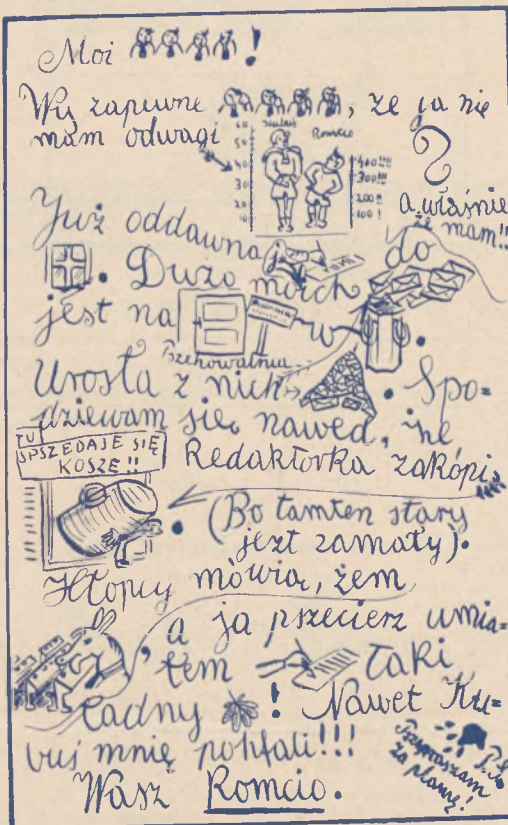 Moi !
Wy zapewne , że ja nie
mam odwagi
60
50
40
30
20
10
Romcio
400!!!
300!!!
200!!
100!
?
a właśnie
że mam!!
Już oddawna do
. Dużo moich
jest na w .
Pszehowalnia
Urosła z nich . Spo=
dziewam się nawed, że
Redaktorka zakópi
TU
SPSZEDAJE SIĘ
KOSZE!!
. (Bo tamten stary
jezt zamały).
Hłopcy mówią, żem
, a ja pszecierz umia=
łem taki
ładny ! Nawet Ku=
buś mnię pohfali!!!
Wasz Romcio.
P.S.
Pszepraszam
za plamę!